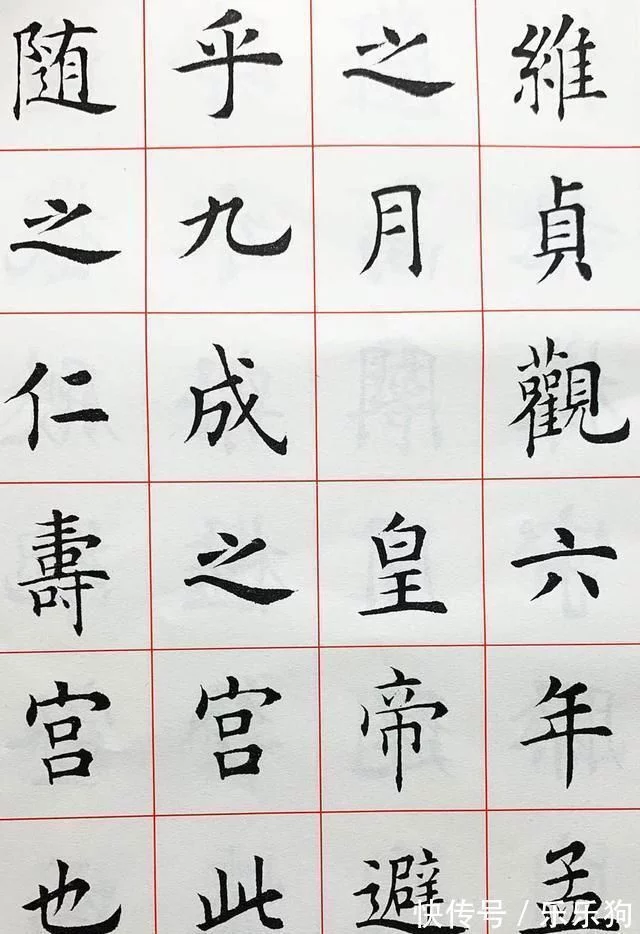 維貞觀六年孟
之月皇帝避
乎九成之宫此
随之仁壽宫也
快传号/乐乐狗